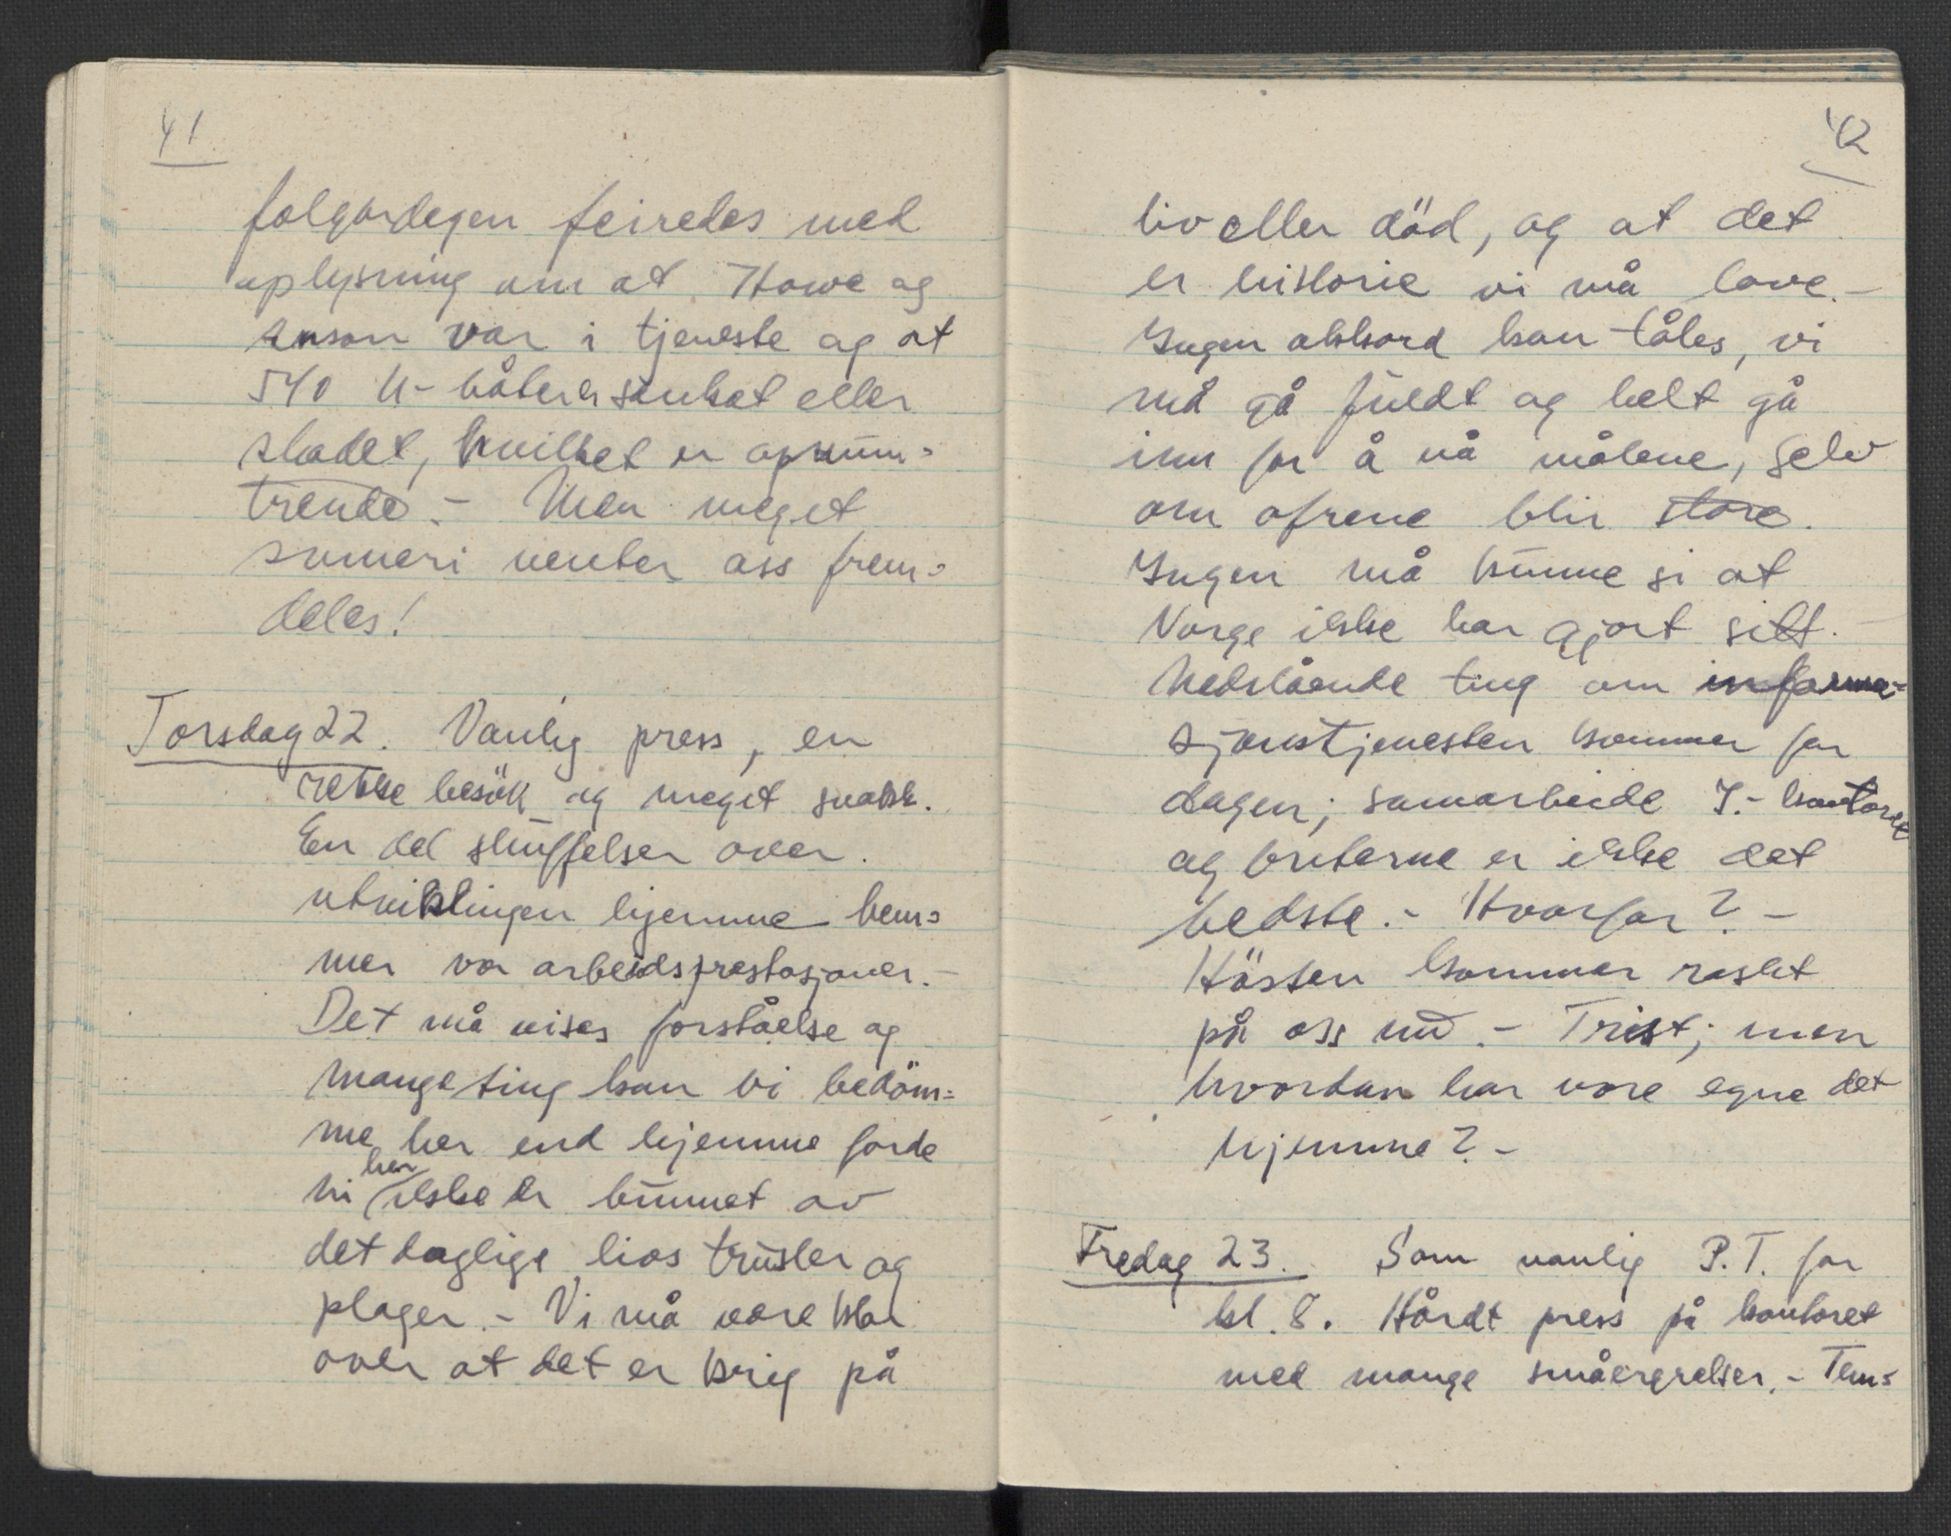 41
folgardagen feiredes med
oplysning om at Howe og
Anson var i tjeneste og at
540 U-båter er senket eller
skadet, hvilket er opmun=
trende. - Men meget
surneri venter oss frem=
deles!
Torsdag 22. Vanlig press, en
rekke besök og meget snakk.
En del skuffelser over
utviklingen hjemme hem=
mer vor arbeidsprestasjoner. -
Det må vises forståelse og
mange ting kan vi bedöm=
me her end hjemme fordi
vi her ikke er bunnet av
det daglige livs trusler og
plager. - Vi må være klar
over at det er krig på
42
liv eller död, og at det
er historie vi må lave. -
Ingen akkord kan tåles, vi
må gå fuldt og helt gå
inn for å nå målene, selv
om ofrene blir store.
Ingen må kunne si at
Norge ikke har gjort sitt.
Nedslående ting om informa=
sjonstjenesten kommer for
dagen; samarbeide I.- kontoret
og briterne er ikke det
bedste. - Hvorfor? -
Hösten kommer raskt
på oss nu. - Trist; men
hvordan har vore egne det
hjemme? -
Fredag 23. Som vanlig P.T. for
kl. 8. Hårdt press på kontoret
med mange småergrelser. - Tem=